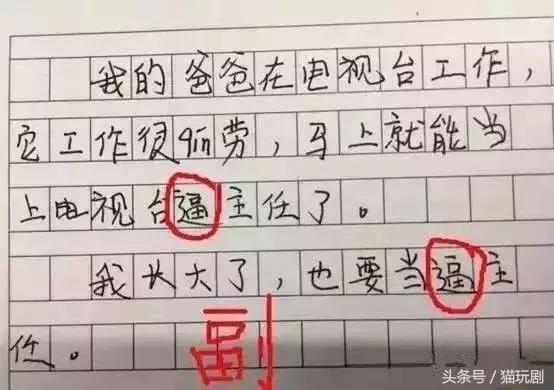 我的爸爸在电视台工作，
它工作很qin劳，马上就能当
上电视台逼主任了。
我长大了，也要当逼主
任。
副
头条号／猫玩剧